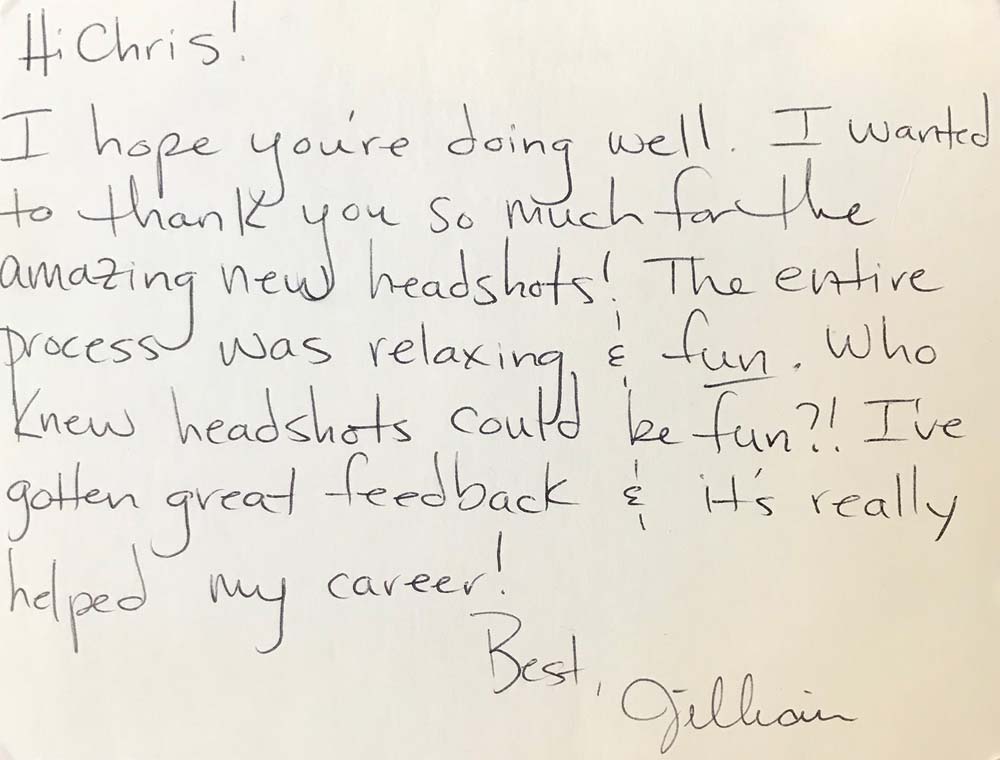 Hi Chris!
I hope you're doing well. I wanted
to thank you so much for the
amazing new headshots! The entire
process was relaxing & fun. Who
knew headshots could be fun?! I've
gotten great feedback & it's really
helped my career!
Best,
Jillian